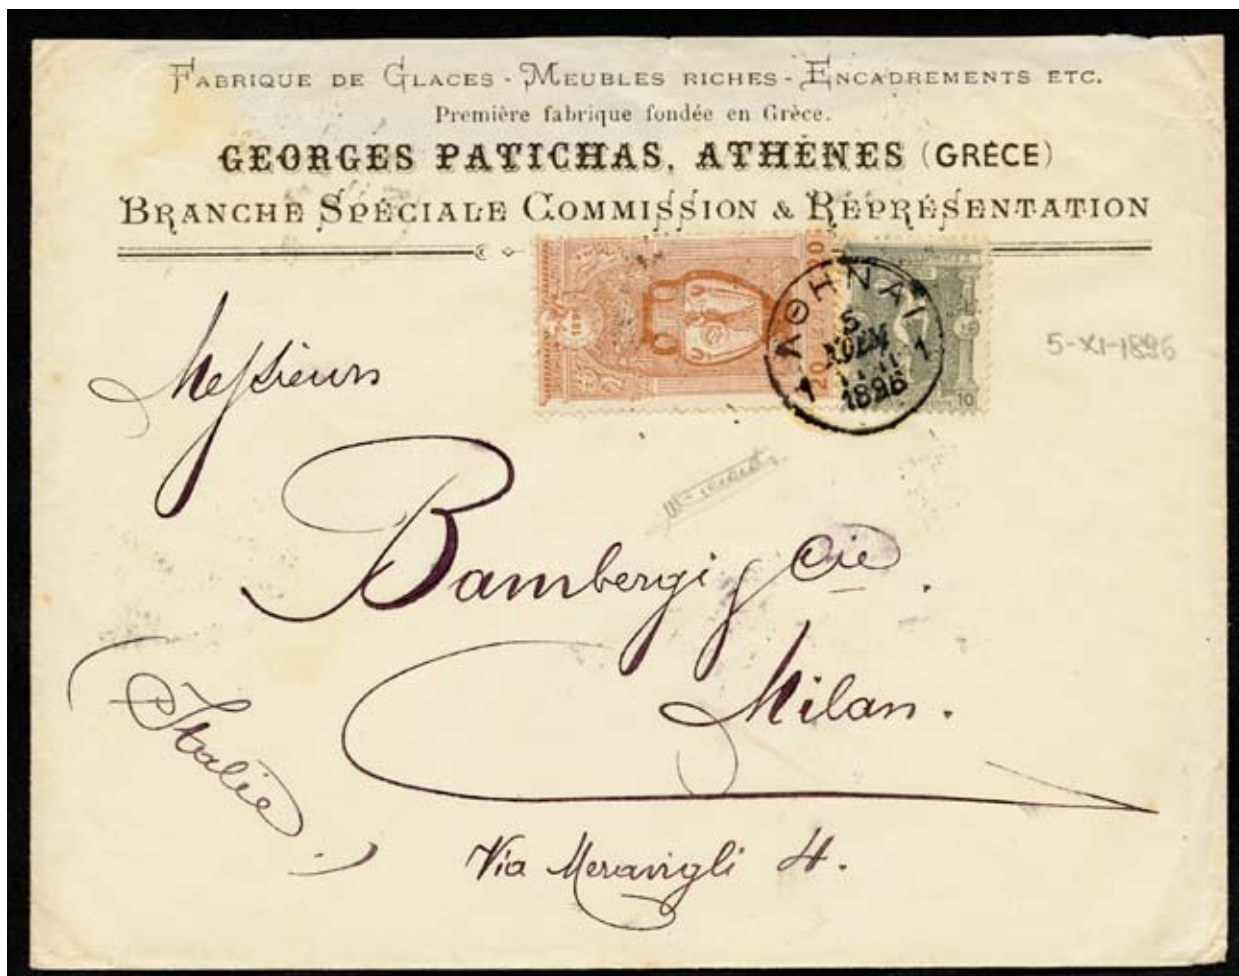 FABRIQUE DE GLACES - MEUBLES RICHES - ENCADREMENTS ETC.
Première fabrique fondée en Grèce.
GEORGES PATICHAS, ATHÈNES (GRÈCE)
BRANCHE SPÉCIALE COMMISSION & REPRÉSENTATION
1896
20
20
10
ΑΘΗΝΑΙ
5
ΝΟΕΜ
1 1
1896
5-XI-1896
Messieurs
Bambergi & Cie.
Milan.
(Italie.)
Via Meravigli 4.